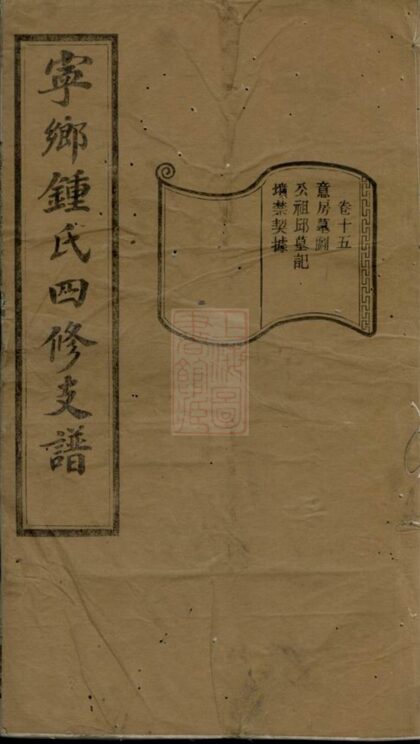 寧鄉鍾氏四修支譜
卷十五
意房墓圖
癸祖邱墓記
墳禁契據
上海圖
書館臧